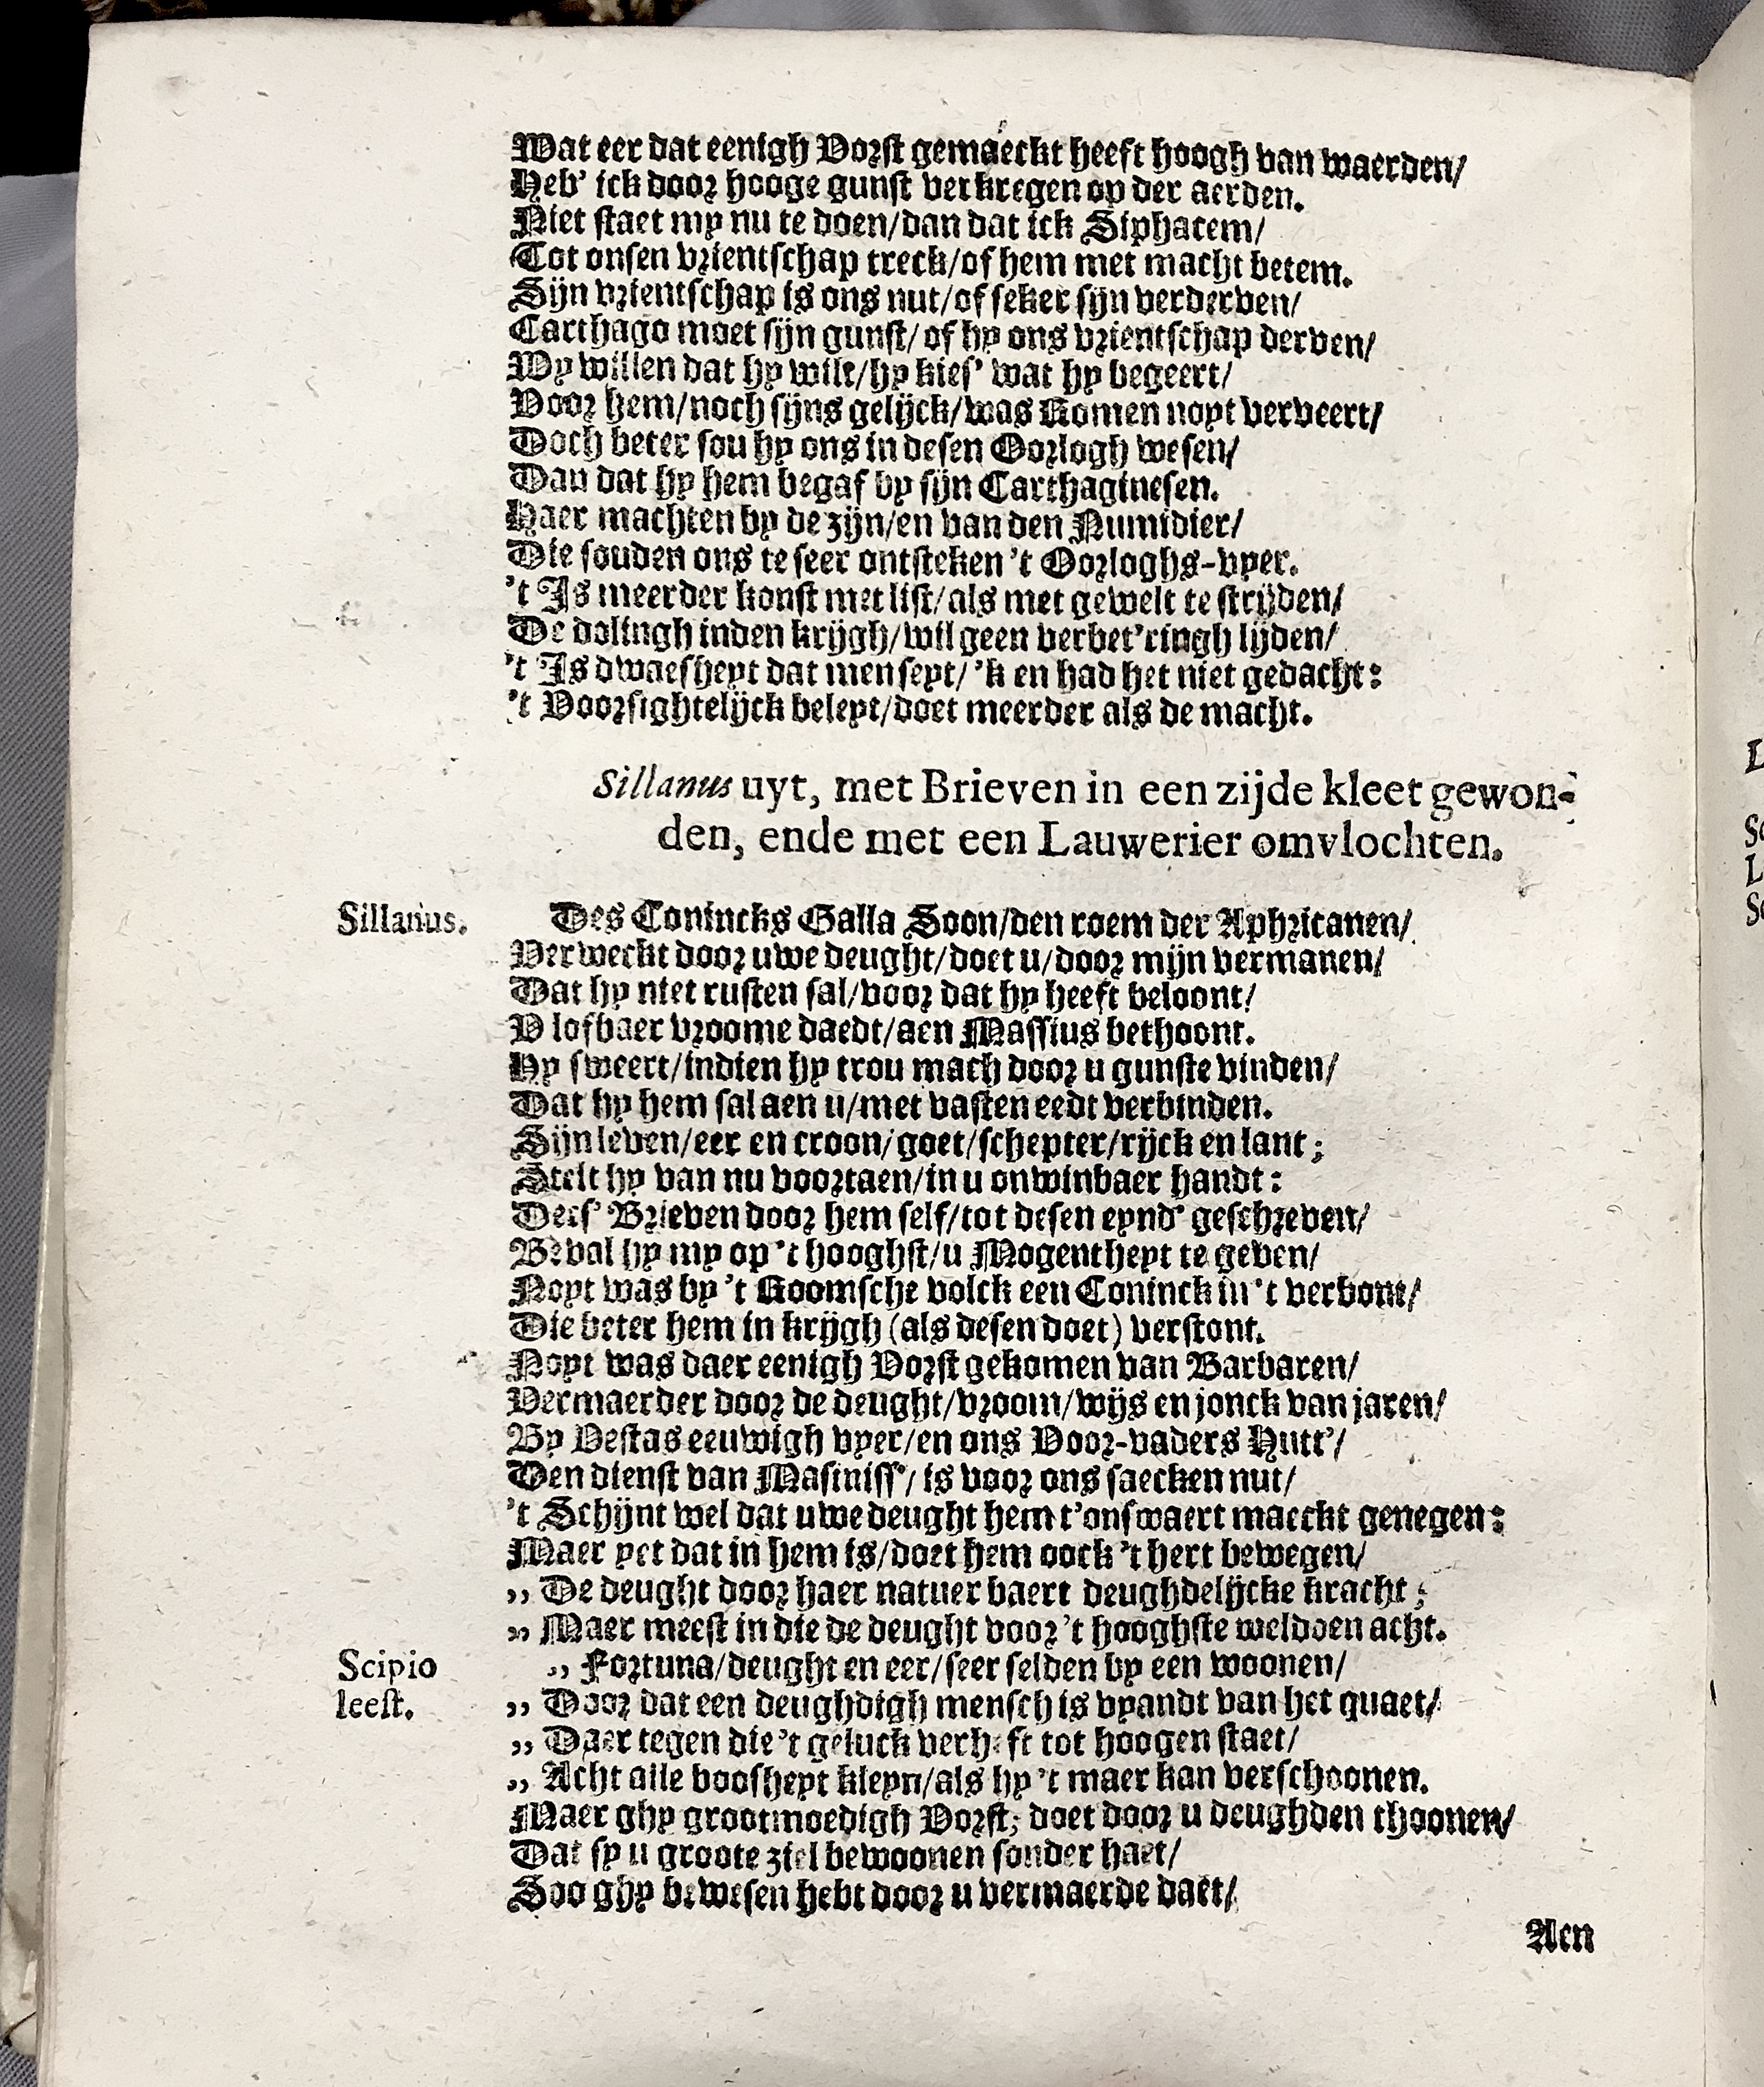 Wat eer dat eenigh Vorst gemaeckt heeft hoogh van waerden/
Heb' ick door hooge gunst verkregen op der aerden.
Niet staet my nu te doen/dan dat ick Siphacem/
Tot onsen vrientschap treck/of hem met macht betem.
Sijn vrientschap is ons nut/of seker sijn verderven/
Carthago moet sijn gunst/of hy ons vrientschap derven/
Wy willen dat hy wilt/hy kies' wat hy begeert/
Voor hem/noch sijns gelijck/was Romen noyt verveert/
Doch beter sou hy ons in desen Oorlogh wesen/
Dan dat hy hem begaf by sijn Carthaginesen.
Haer machten by de zijn/en van den Numidier/
Die souden ons te seer ontsteken 't Oorloghs-vyer.
't Is meerder konst met list/als met gewelt te strijden/
De dolingh inden krijgh/wil geen verbet'ringh lijden/
't Is dwaesheyt dat men seyt/'k en had het niet gedacht:
't Voorsightelijck beleyt/doet meerder als de macht.
Sillanus uyt, met Brieven in een zijde kleet gewon-
den, ende met een Lauwerier omvlochten.
Sillanus. Des Conincks Galla Soon/den roem der Aphricanen/
Verweckt door uwe deught/doet u/door mijn vermanen/
Dat hy niet rusten sal/voor dat hy heeft beloont/
V lofbaer vroome daedt/aen Massius bethoont.
Hy sweert/indien hy trou mach door u gunste vinden/
Dat hy hem sal aen u/met vasten eedt verbinden.
Sijn leven/eer en croon/goet/schepter/rijck en lant;
Stelt hy van nu voortaen/in u onwinbaer handt:
Dees' Brieven door hem self/tot desen eynd' geschreven/
Beval hy my op 't hooghst/u Mogentheyt te geven/
Noyt was by 't Roomsche volck een Coninck in 't verbont/
Die beter hem in krijgh (als desen doet) verstont.
Noyt was daer eenigh Vorst gekomen van Barbaren/
Vermaerder door de deught/vroom/wijs en jonck van jaren/
By Vestas eeuwigh vyer/en ons Voor-vaders Hutt'/
Den dienst van Masiniss'/is voor ons saecken nut/
't Schijnt wel dat uwe deught hem t'onswaert maeckt genegen:
Maer yet dat in hem is/doet hem oock 't hert bewegen/
,, De deught door haer natuer baert deughdelijcke kracht;
,, Maer meest in die de deught voor 't hooghste weldoen acht.
Scipio ,, Fortuna/deught en eer/seer selden by een woonen/
leest. ,, Door dat een deughdigh mensch is vyandt van het quaet/
,, Daer tegen die 't geluck verheft tot hoogen staet/
,, Acht alle boosheyt kleyn/als hy 't maer kan verschoonen.
Maer ghy grootmoedigh Vorst; doet door u deughden thoonen/
Dat sy u groote ziel bewoonen sonder haet/
Soo ghy bewesen hebt door u vermaerde daet/
Aen